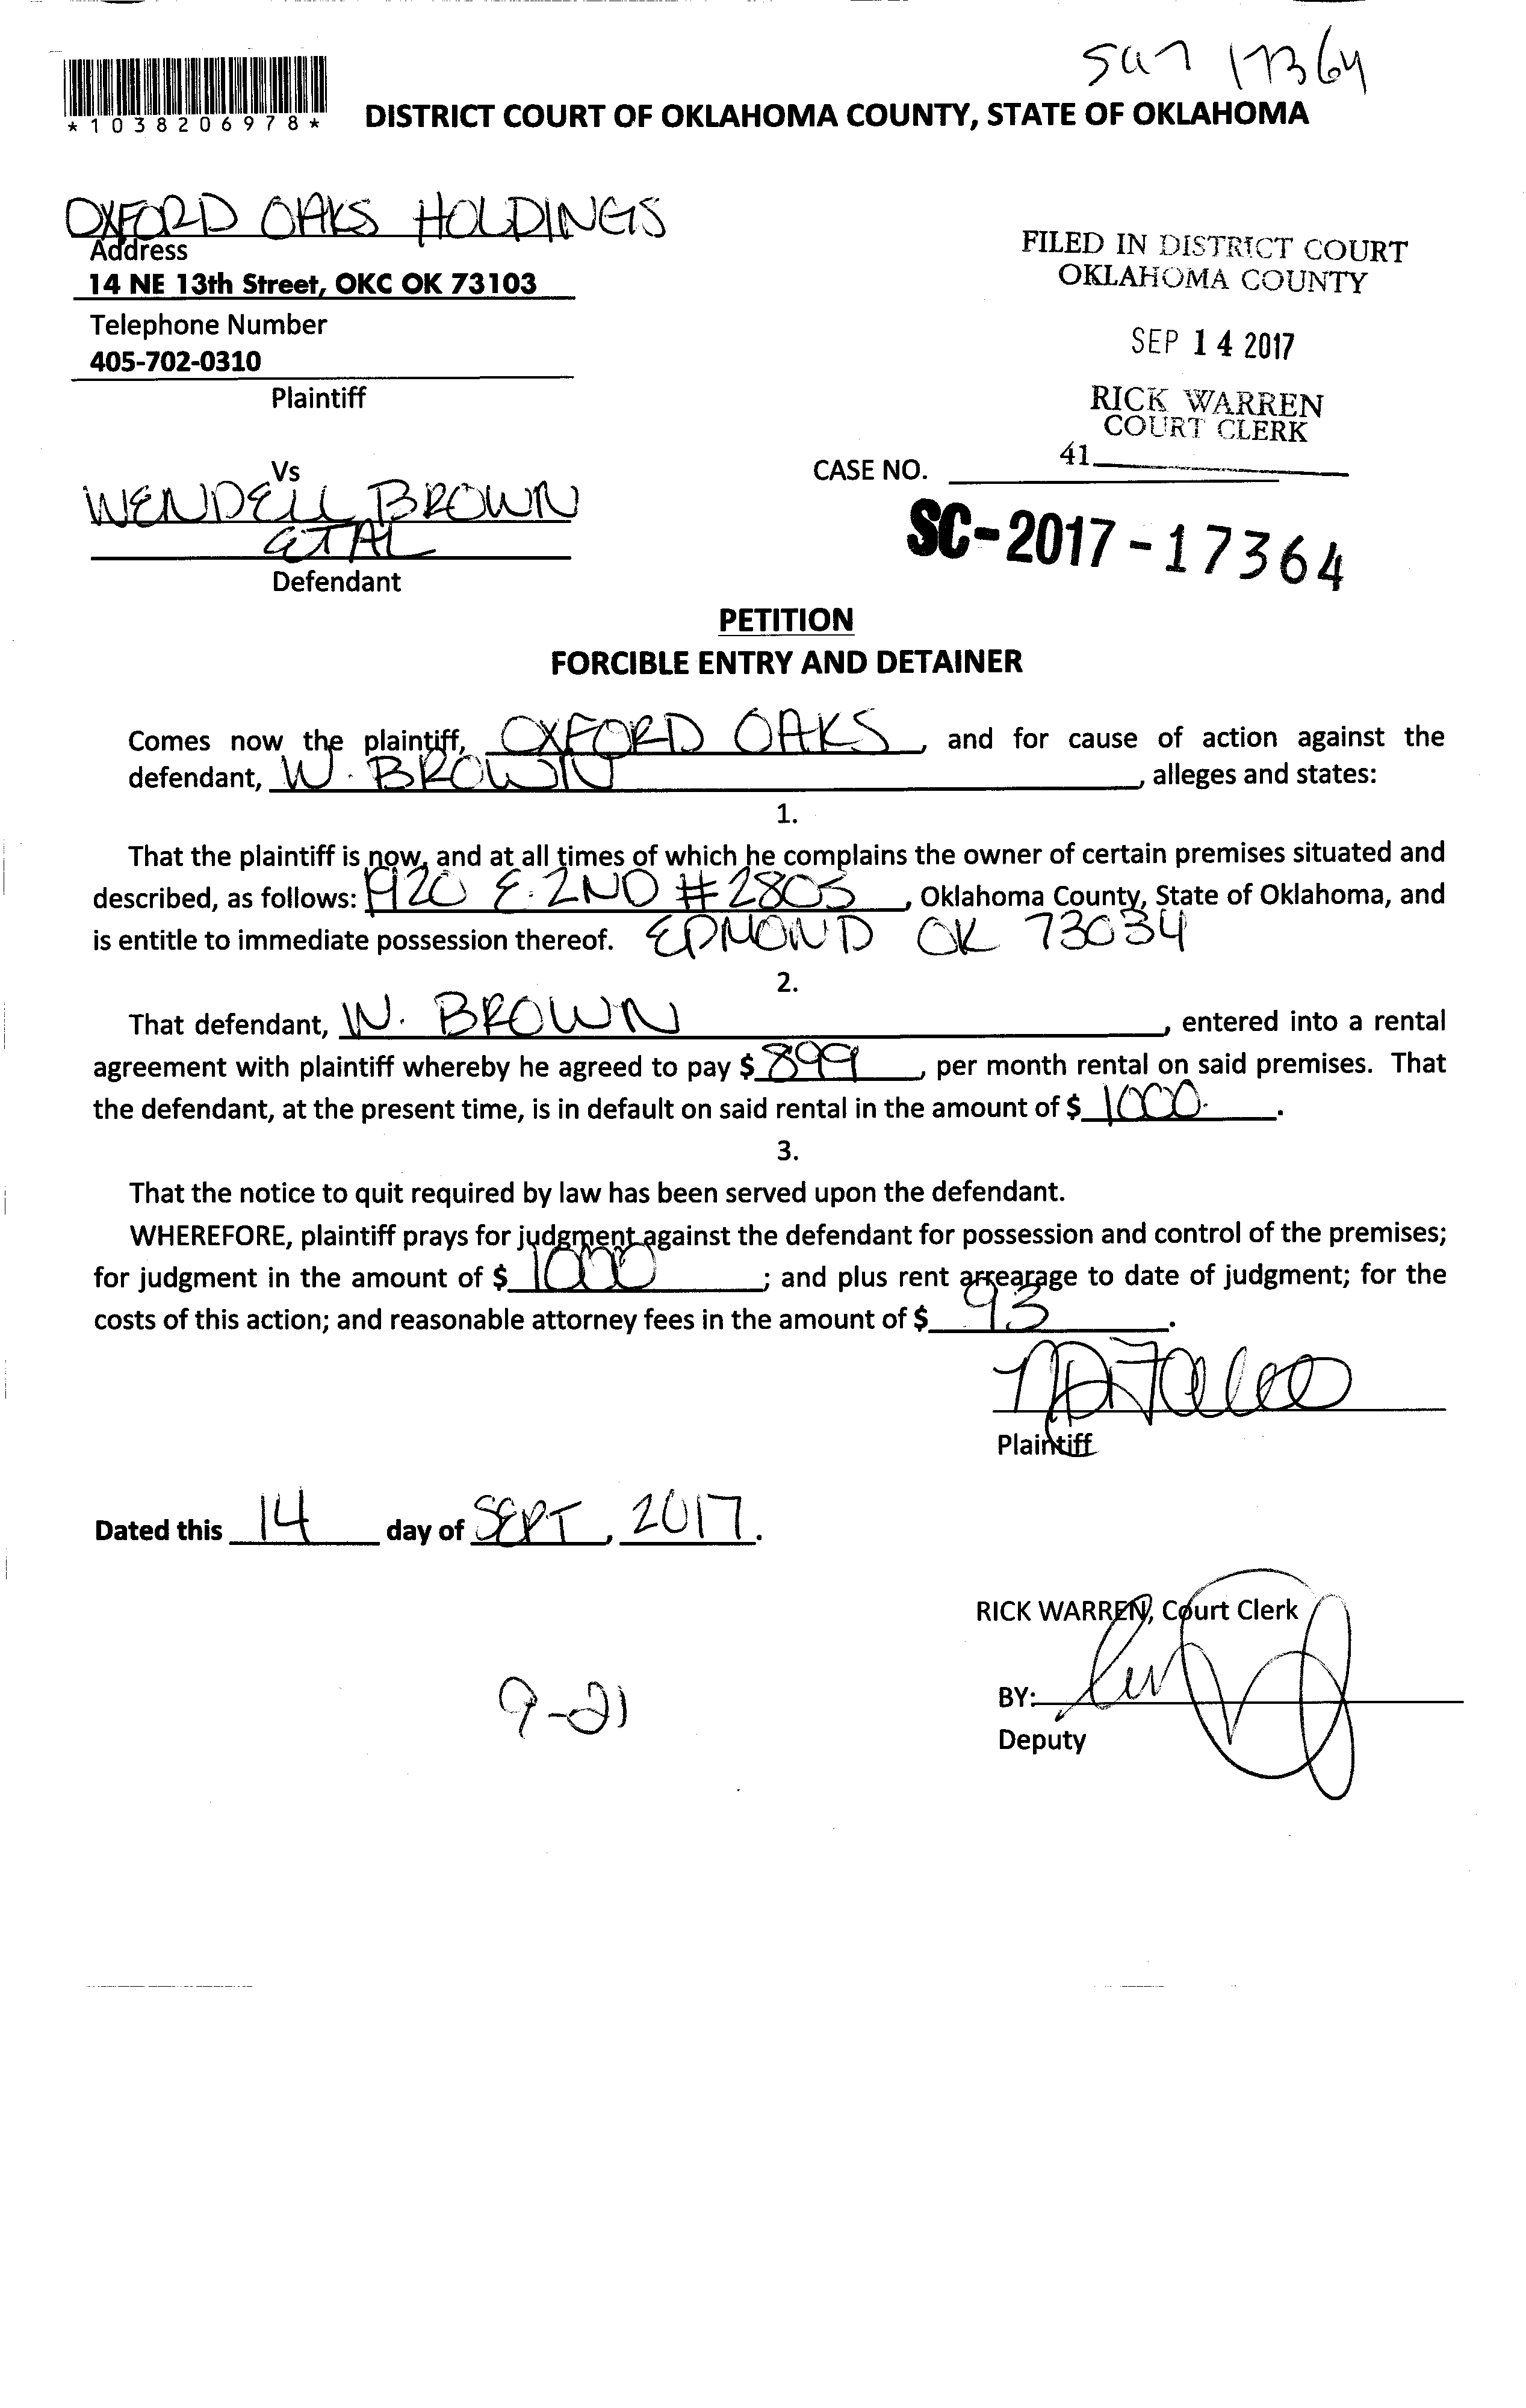 SC17 17364
*1038206978*
DISTRICT COURT OF OKLAHOMA COUNTY, STATE OF OKLAHOMA
OXFORD OAKS HOLDINGS
Address
14 NE 13th Street, OKC OK 73103
Telephone Number
405-702-0310
Plaintiff
FILED IN DISTRICT COURT
OKLAHOMA COUNTY
SEP 14 2017
RICK WARREN
COURT CLERK
41
Vs
WENDELL BROWN
ET AL
Defendant
CASE NO.
SC-2017-17364
PETITION
FORCIBLE ENTRY AND DETAINER
Comes now the plaintiff, OXFORD OAKS, and for cause of action against the
defendant, W. BROWN, alleges and states:
1.
That the plaintiff is now, and at all times of which he complains the owner of certain premises situated and
described, as follows: 1920 E. 2ND #2805, Oklahoma County, State of Oklahoma, and
is entitle to immediate possession thereof. EDMOND OK 73034
2.
That defendant, W. BROWN, entered into a rental
agreement with plaintiff whereby he agreed to pay $ 899, per month rental on said premises. That
the defendant, at the present time, is in default on said rental in the amount of $ 1000.
3.
That the notice to quit required by law has been served upon the defendant.
WHEREFORE, plaintiff prays for judgment against the defendant for possession and control of the premises;
for judgment in the amount of $ 1000; and plus rent arrearage to date of judgment; for the
costs of this action; and reasonable attorney fees in the amount of $ 93.
Plaintiff
Dated this 14 day of SEPT, 2017.
RICK WARREN, Court Clerk
9-21
BY:
Deputy